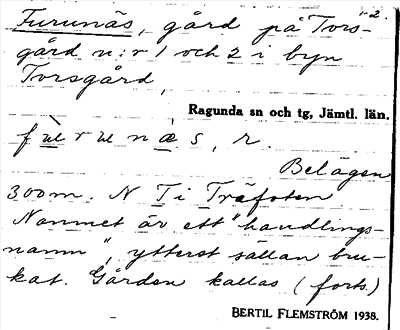 1-2.
Furunäs, gård på Tors-
gård n:r 1 och 2 i byn
Torsgård,
Ragunda sn och tg, Jämtl. län.
Belägen
300 m. N T i Träfoten
Namnet är ett "handlings-
namn", ytterst sällan bru-
kat. Gården kallas (forts.)
BERTIL FLEMSTRÖM 1938.